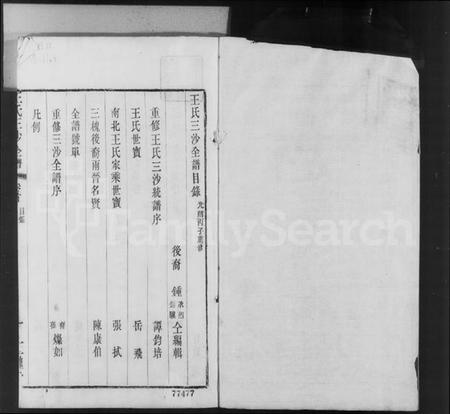 王氏三沙全譜目錄
光緒丙子重修
後裔 鍾 仝編輯
重修王氏三沙統譜序 譚鈞培
王氏世寶 岳飛
南北王氏家乘世寶 張拭
三槐後裔兩晉名賢 陳康伯
全譜號單
重修三沙全譜序 燦如
凡例
王氏三沙全譜
目錄
77477
FamilySearch